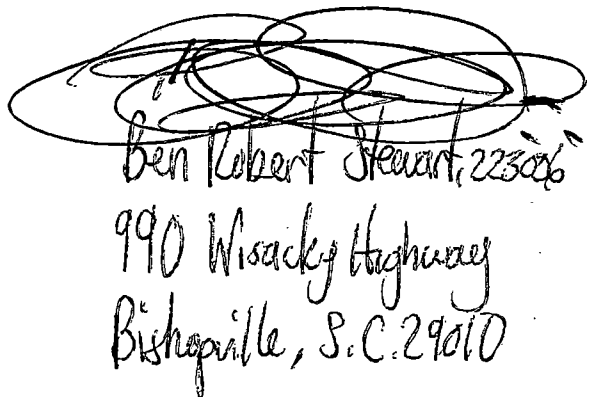 Ben Robert Stewart,
990 Wisacky Highway
Bishopville, S.C. 29010